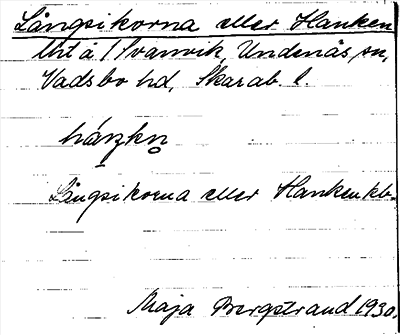 Långsikorna eller Hanken
lht å /Svanvik, Undenäs sn,
Vadsbo hd, Skarab. l.
hánkn
Långsikorna eller Hanken kb.
Maja Bergstrand 1930.